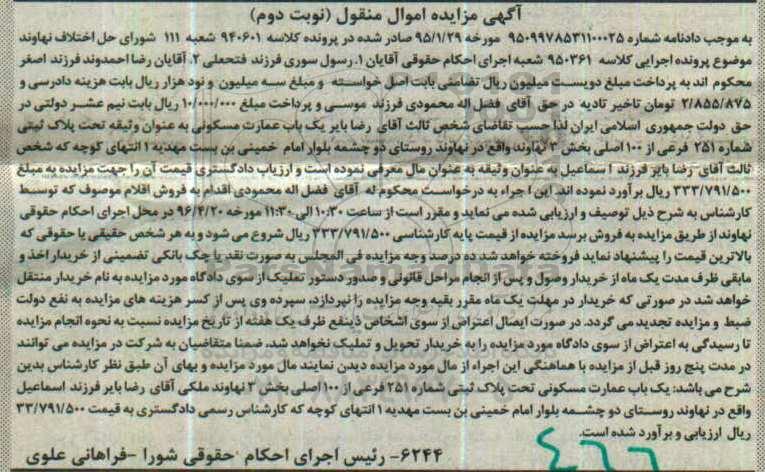 آگهی مزایده اموال منقول (نوبت دوم)
به موجب دادنامه شماره ۹۵۰۹۹۷۸۵۳۱۱۰۰۰۲۵ مورخه ۹۵/۱/۲۹ صادر شده در پرونده کلاسه ۹۴۰۶۰۱ شعبه ۱۱۱ شورای حل اختلاف نهاوند
موضوع پرونده اجرایی کلاسه ۹۵۰۳۶۱ شعبه اجرای احکام حقوقی آقایان ۱. رسول سوری فرزند فتحعلی ۲. آقایان رضا احمدوند فرزند اصغر
محکوم اند به پرداخت مبلغ دویست میلیون ریال تضامنی بابت اصل خواسته و مبلغ سه میلیون و نود هزار ریال بابت هزینه دادرسی و
۲/۸۵۵/۸۷۵ تومان تاخیر تادیه در حق آقای فضل اله محمودی فرزند موسی و پرداخت مبلغ ۱۰/۰۰۰/۰۰۰ ریال بابت نیم عشر دولتی در
حق دولت جمهوری اسلامی ایران لذا حسب تقاضای شخص ثالث آقای رضا بایر یک باب عمارت مسکونی به عنوان وثیقه تحت پلاک ثبتی
شماره ۲۵۱ فرعی از ۱۰۰ اصلی بخش ۳ نهاوند واقع در نهاوند روستای دو چشمه بلوار امام خمینی بن بست مهدیه ۱ انتهای کوچه که شخص
ثالث آقای رضا بایر فرزند اسماعیل به عنوان وثیقه به عنوان مال معرفی نموده است و ارزیاب دادگستری قیمت آن را جهت مزایده به مبلغ
۳۳۳/۷۹۱/۵۰۰ ریال برآورد نموده اند. این اجراء به درخواست محکوم له آقای فضل اله محمودی اقدام به فروش اقلام موصوف که توسط
کارشناس به شرح ذیل توصیف و ارزیابی شده می نماید و مقرر است از ساعت ۱۰:۳۰ الی ۱۱:۳۰ مورخه ۹۶/۴/۲۰ در محل اجرای احکام حقوقی
نهاوند از طریق مزایده به فروش برسد مزایده از قیمت پایه کارشناسی ۳۳۳/۷۹۱/۵۰۰ ریال شروع می شود و به هر شخص حقیقی یا حقوقی که
بالاترین قیمت را پیشنهاد نماید فروخته خواهد شد ده درصد وجه مزایده فی المجلس به صورت نقد یا چک بانکی تضمینی از خریدار اخذ و
مابقی ظرف مدت یک ماه از خریدار وصول و پس از انجام مراحل قانونی و صدور دستور تملیک از سوی دادگاه مورد مزایده به نام خریدار منتقل
خواهد شد در صورتی که خریدار در مهلت یک ماه مقرر بقیه وجه مزایده را نپردازد، سپرده وی پس از کسر هزینه های مزایده به نفع دولت
ضبط و مزایده تجدید می گردد. در صورت ایصال اعتراض از سوی اشخاص ذینفع ظرف یک هفته از تاریخ مزایده نسبت به نحوه انجام مزایده
تا رسیدگی به اعتراض از سوی دادگاه مورد مزایده را به خریدار تحویل و تملیک نخواهد شد، ضمنا متقاضیان به شرکت در مزایده می توانند
در مدت پنج روز قبل از مزایده با هماهنگی این اجراء از مال مورد مزایده دیدن نمایند مال مورد مزایده و بهای آن طبق نظر کارشناس بدین
شرح می باشد: یک باب عمارت مسکونی تحت پلاک ثبتی شماره ۲۵۱ فرعی از ۱۰۰ اصلی بخش ۳ نهاوند ملکی آقای رضا بایر فرزند اسماعیل
واقع در نهاوند روستای دو چشمه بلوار امام خمینی بن بست مهدیه ۱ انتهای کوچه که کارشناس رسمی دادگستری به قیمت ۳۳/۷۹۱/۵۰۰
ریال ارزیابی و برآورد شده است.
۶۲۴۴- رئیس اجرای احکام حقوقی شورا -فراهانی علوی